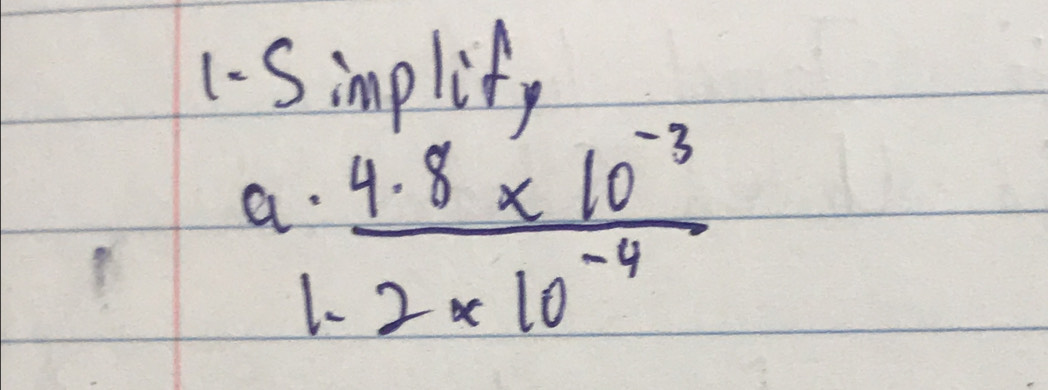 1-Simplify
a. 4.8 × 10⁻³
1.2 × 10⁻⁴